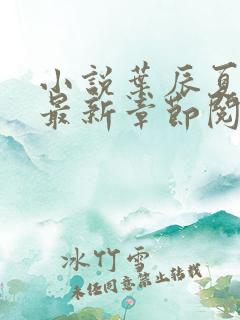 小说叶辰夏
最新章节阅
冰竹雪
未经同意禁止转载